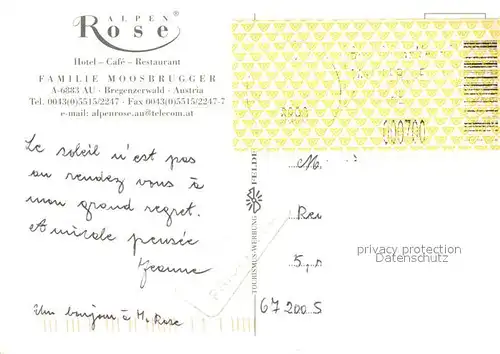 ALPEN
Rose®
Hotel – Café – Restaurant
FAMILIE MOOSBRUGGER
A-6883 AU · Bregenzerwald · Austria
Tel. 0043(0)5515/2247 · Fax 0043(0)5515/2247-7
e-mail: alpenrose.au@telecom.at
Le soleil n'est pas
au rendez vous à
mon grand regret.
Amicale pensée
Jeanne
Un bonjour à M. Rose
TOURISMUS-WERBUNG FELDK
M.
Reu
5,
67200 S
privacy protection
Datenschutz